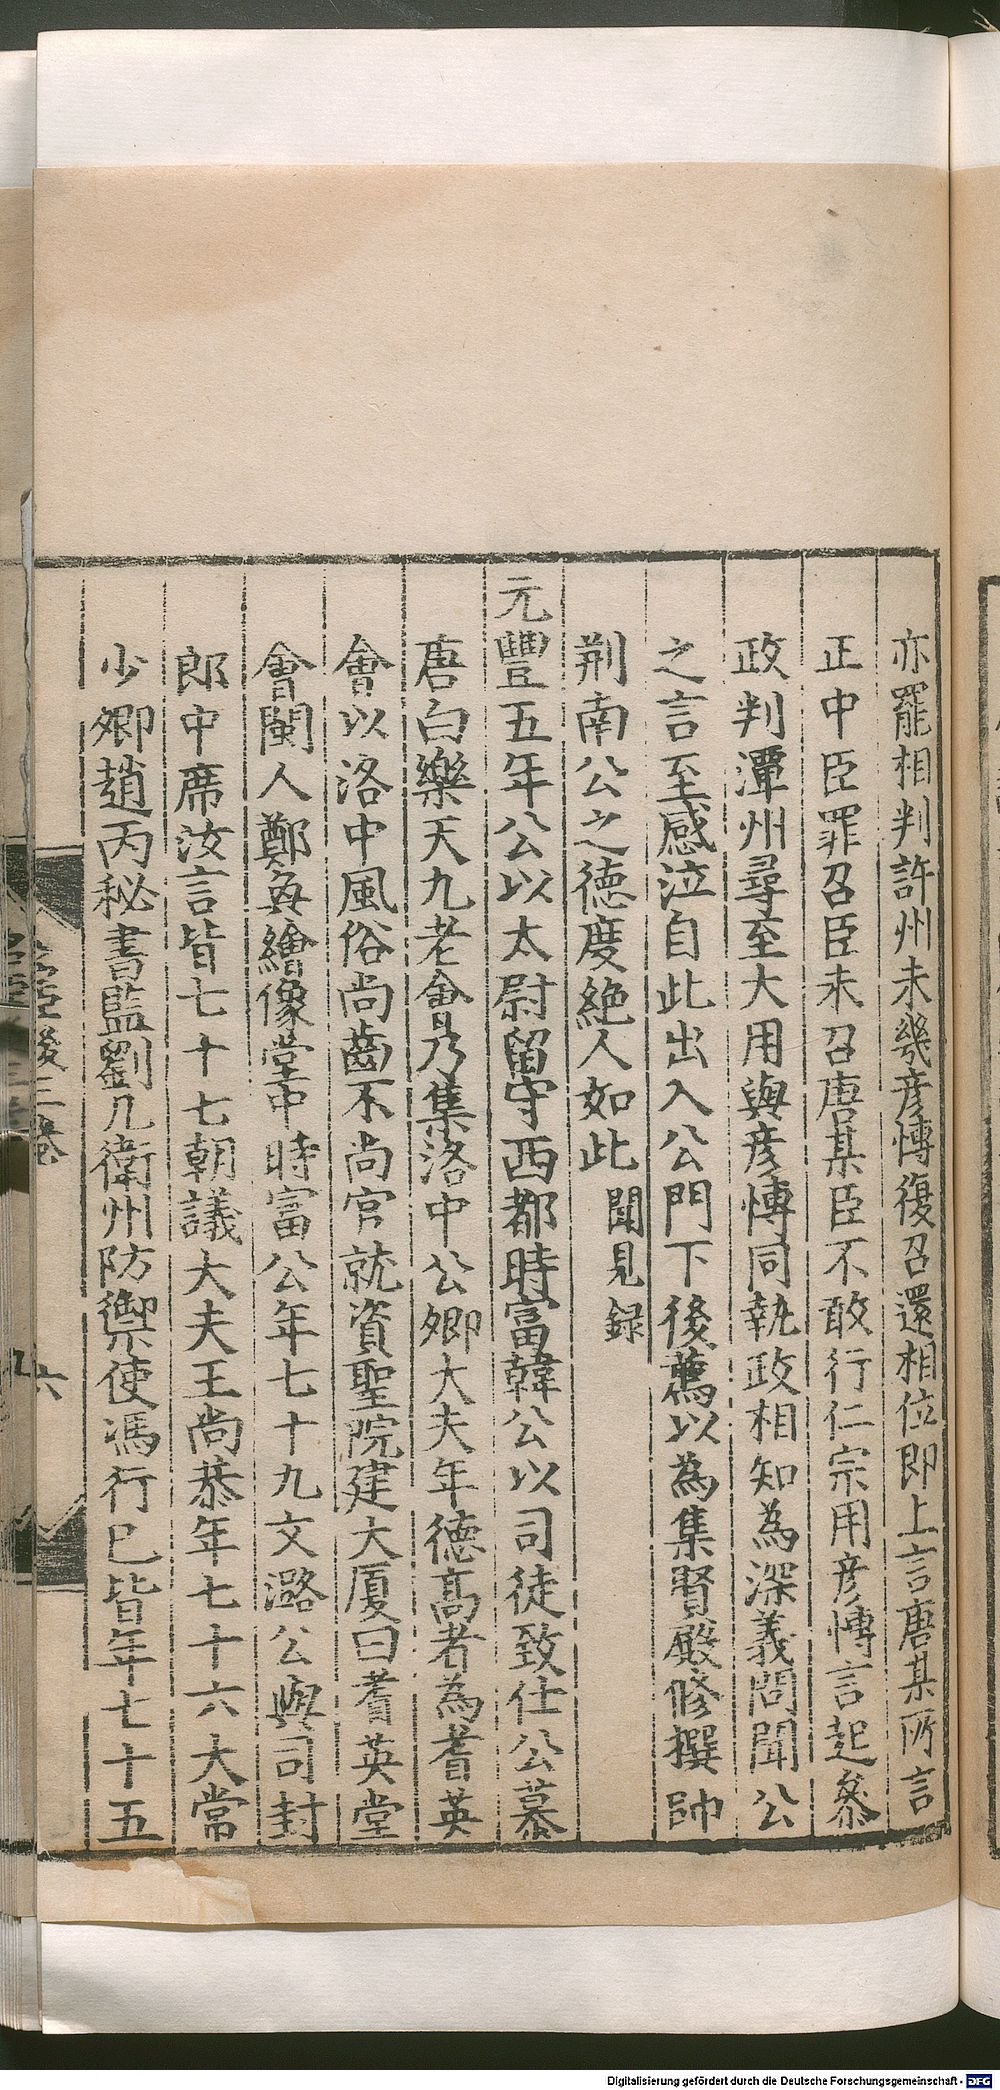 亦罷相判許州未幾彦愽復召還相位即上言唐某所言
正中臣罪召臣未召唐某臣不敢行仁宗用彦愽言起叅
政判潭州尋至大用與彦愽同執政相知為深義問聞公
之言至感泣自此出入公門下後薦以為集賢殿修撰帥
荆南公之德度絶人如此 聞見録
元豐五年公以太尉留守西都時富韓公以司徒致仕公慕
唐白樂天九老會乃集洛中公卿大夫年德高者為耆英
會以洛中風俗尚齒不尚官就資聖院建大厦曰耆英堂
會閩人鄭奐繪像堂中時富公年七十九文潞公與司封
郎中席汝言皆七十七朝議大夫王尚恭年七十六大常
少卿趙丙秘書監劉几衛州防禦使馮行已皆年七十五
後三卷
六
Digitalisierung gefördert durch die Deutsche Forschungsgemeinschaft - DFG